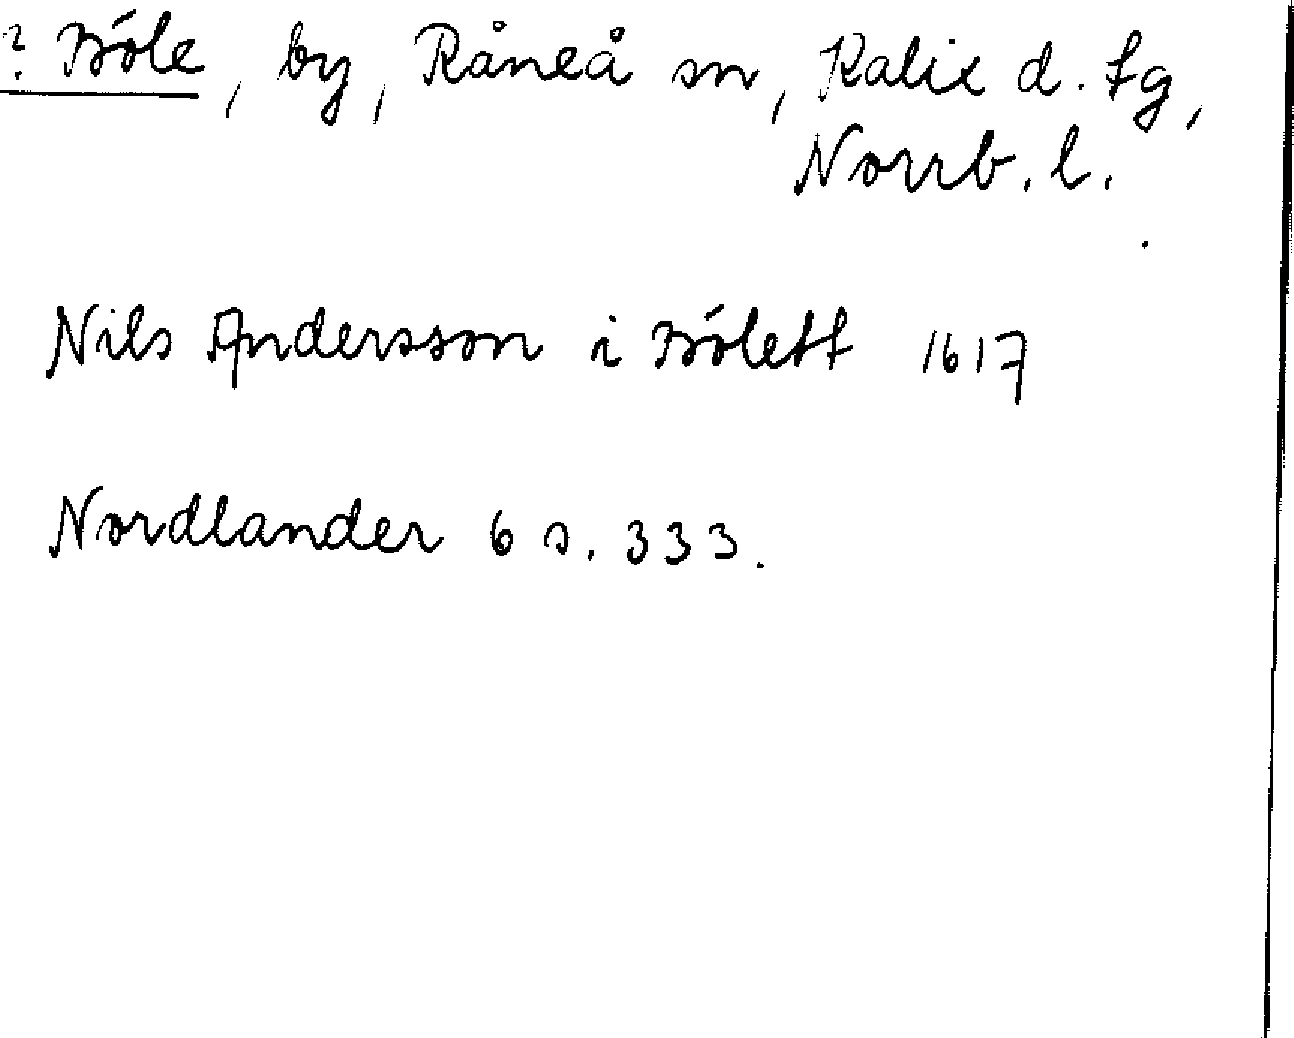 ? Böle, by, Råneå sn, Kalix d. tg,
Norrb. l.
Nils Andersson i Bölett 1617
Nordlander 6 s. 333.